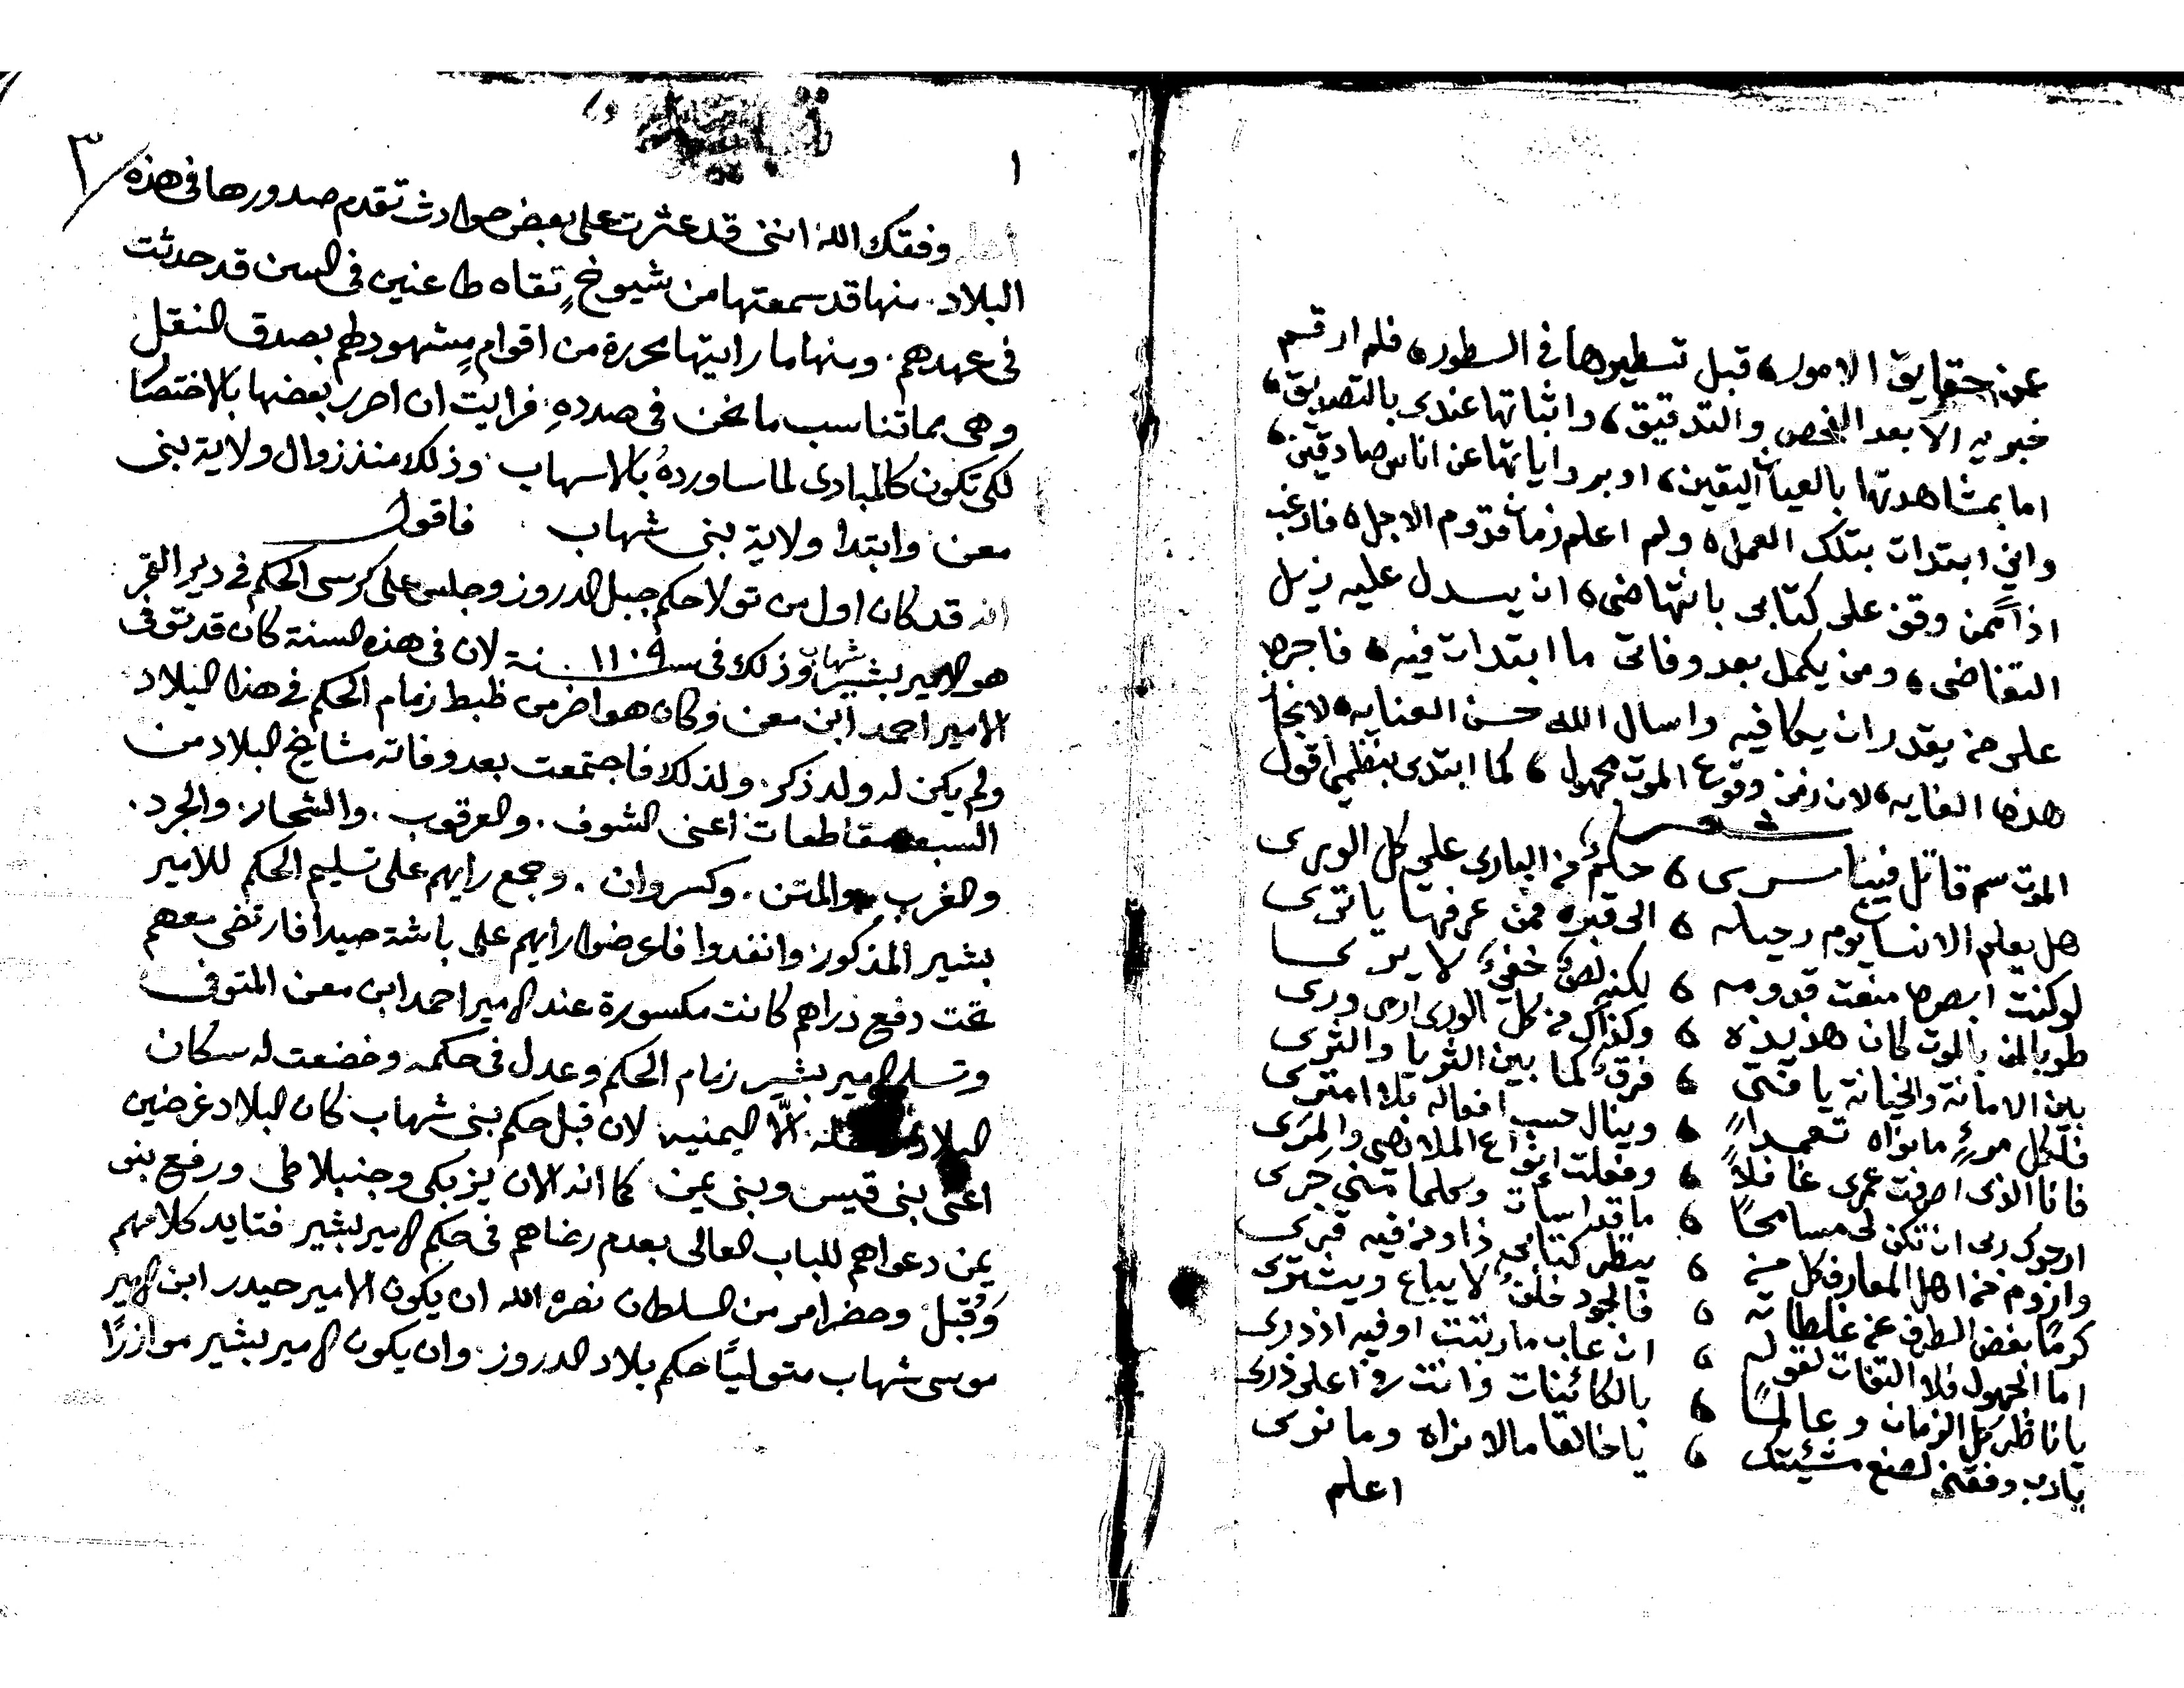 عن حقايق الامور، قبل تسطيرها في السطور، فلم ارقم
خبريه الا بعد الفحص والتدقيق، واثباتها عندي بالتصديق،
اما بمشاهدتها بالعيان اليقين، او برواياتها عن اناس صادقين،
واني ابتدات بتلك العمل، ولم اعلم زمان قدوم الاجل، فارغب
اذاً ممن وقف على كتابي بانتهاضي، ان يسدل عليه ذيل
التغاضي، ومن يكمل بعد وفاتي ما ابتدات فيه، فاجره
على من يقدر ان يكافيه واسال الله حسن العنايه، لانجاز
هذه الغايه، لان زمن وقوع الموت مجهول، كما ابتدي بنظمي اقول
شعر
الموت سم قاتل فينا سرى ، حكمٌ من الباري على كل الورى
هل يعلم الانسان يوم رحيله ، الى قبره فمن عرفها يا ترى
لو كنت ابصرها منعت قدومه ، لكنه لصٌ خفيٌ لا يرى
طوبا لمن بالموت كان هذيذه ، وكذاك من كل الورى
بين الامانة والخيانة يا فتى ، فرقٌ كما بين الثريا والثرى
فلكل مرءٍ ما نواه تعمداً ، وينال حسب افعاله بلا امترى
فانا الذي اصرفت عمري غافلاً ، وفعلت انواع الملا
ارجوك ربي ان تكن لي مسامحاً ، ما قد اسأت وكلما مني جرى
واروم من اهل المعارف كل من ، ينظر كتابي ذا ومن فيه قرى
كرماً بغض الطرف عن غلطاته ، فالجود خلقٌ لا يباع ويشترى
اما الجهول فلا التفات لقوله ، ان عاب ما رتبت او فيه ازدرى
يا ناظر كل الزمان وعالماً ، بالكائنات وانت في اعلى ذرى
يا رب وفقني لصنع مشيئتك ، يا خالقا ما لا نراه وما نرى
اعلم
١
٣
وفقك الله انني قد عثرت على بعض حوادث تقدم صدورها في هذه
البلاد. منها قد سمعتها من شيوخٍ تقاه طاعنين في السن قد حدثت
في عهدهم. ومنها ما رايتها محررة من اقوامٍ مشهود لهم بصدق النقل
وهي مما تناسب ما نحن في صددهِ. فرايت ان احرر بعضها بالاختصار
لكي تكون كالمبادي لما ساوردهُ بالاسهاب. وذلك منذ زوال ولاية بني
معن وابتدا ولاية بني شهاب فاقول
انه قد كان اول من تولا حكم جبل الدروز وجلس على كرسي الحكم في دير القمر
هو الامير بشير شهاب وذلك في سنة ١١٠٩ لان في هذه السنة كان قد توفى
الامير احمد ابن معن وكان هو اخر من ظبط زمام الحكم في هذا البلاد
ولم يكن له ولد ذكر. ولذلك فاجتمعت بعد وفاته مشايخ البلاد من
السبعة مقاطعات اعنى الشوف. والعرقوب. والشحار. والجرد.
والغرب والمتن. وكسروان. وجمع رايهم على تسليم الحكم للامير
بشير المذكور وانفدوا فاعرضوا رايهم على باشة صيدا فارتضى معهم
تحت دفع دراهم كانت مكسورة عند الامير احمد ابن معن المتوفى
وتسلم الامير بشير زمام الحكم وعدل في حكمه وخضعت له سكان
البلاد الّا اليمنيه لان قبل حكم بني شهاب كان البلاد غرضين
اعنى بني قيس وبني يمن كما انه الان يزبكي وجنبلاطي ورفع بني
يمن دعواهم للباب العالي بعدم رضاهم في حكم الامير بشير فتايد كلامهم
وقُبل وحضر امر من السلطان نصره الله ان يكون الامير حيدر ابن الامير
موسى شهاب متولياً حكم بلاد الدروز. وان يكون الامير بشير موازرًا